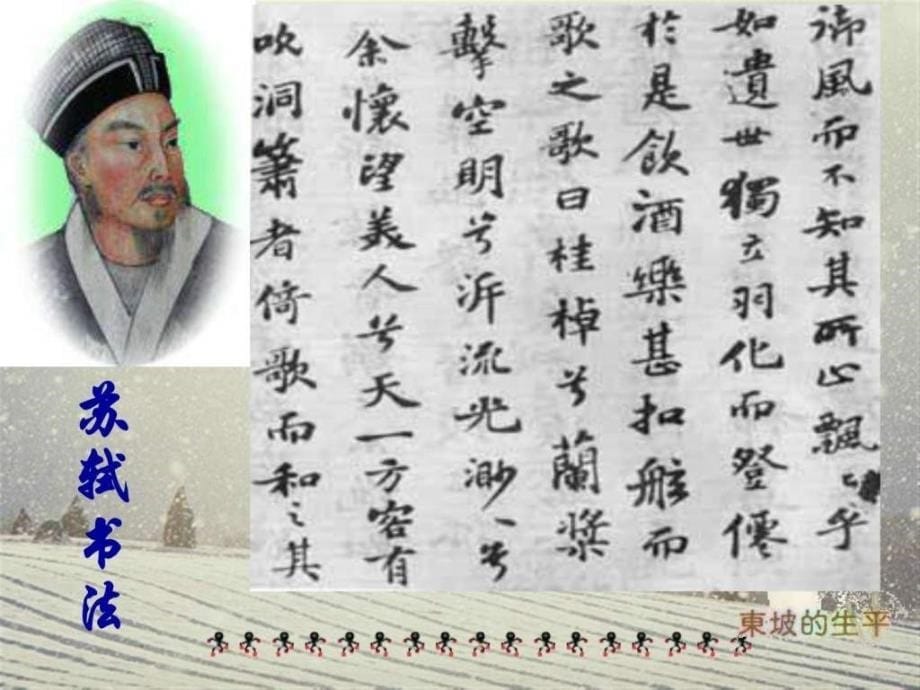 御風而不知其所止飄〻乎
如遺世獨立羽化而登僊
於是飲酒樂甚扣舷而
歌之歌曰桂棹兮蘭槳
擊空明兮泝流光渺〻兮
余懷望美人兮天一方客有
吹洞簫者倚歌而和之其
苏轼书法
東坡的生平